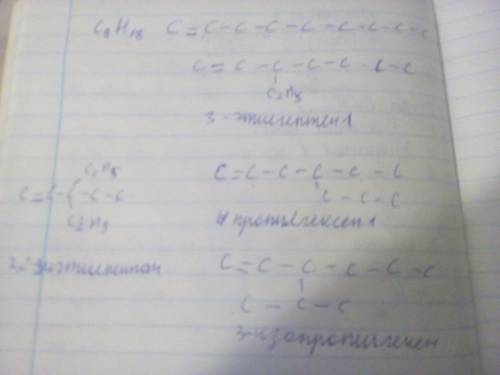 C9H18 C=C-C-C-C-C-C-C-C
C=C-C-C-C-C-C
C2H5
3-этилгептен 1
C2H5
C=C-C-C-C
C2H5
C=C-C-C-C-C
C-C-C
4 пропилгексен 1
3,3-диэтилпентан
C=C-C-C-C-C
C-C-C
3-изопропилгексен